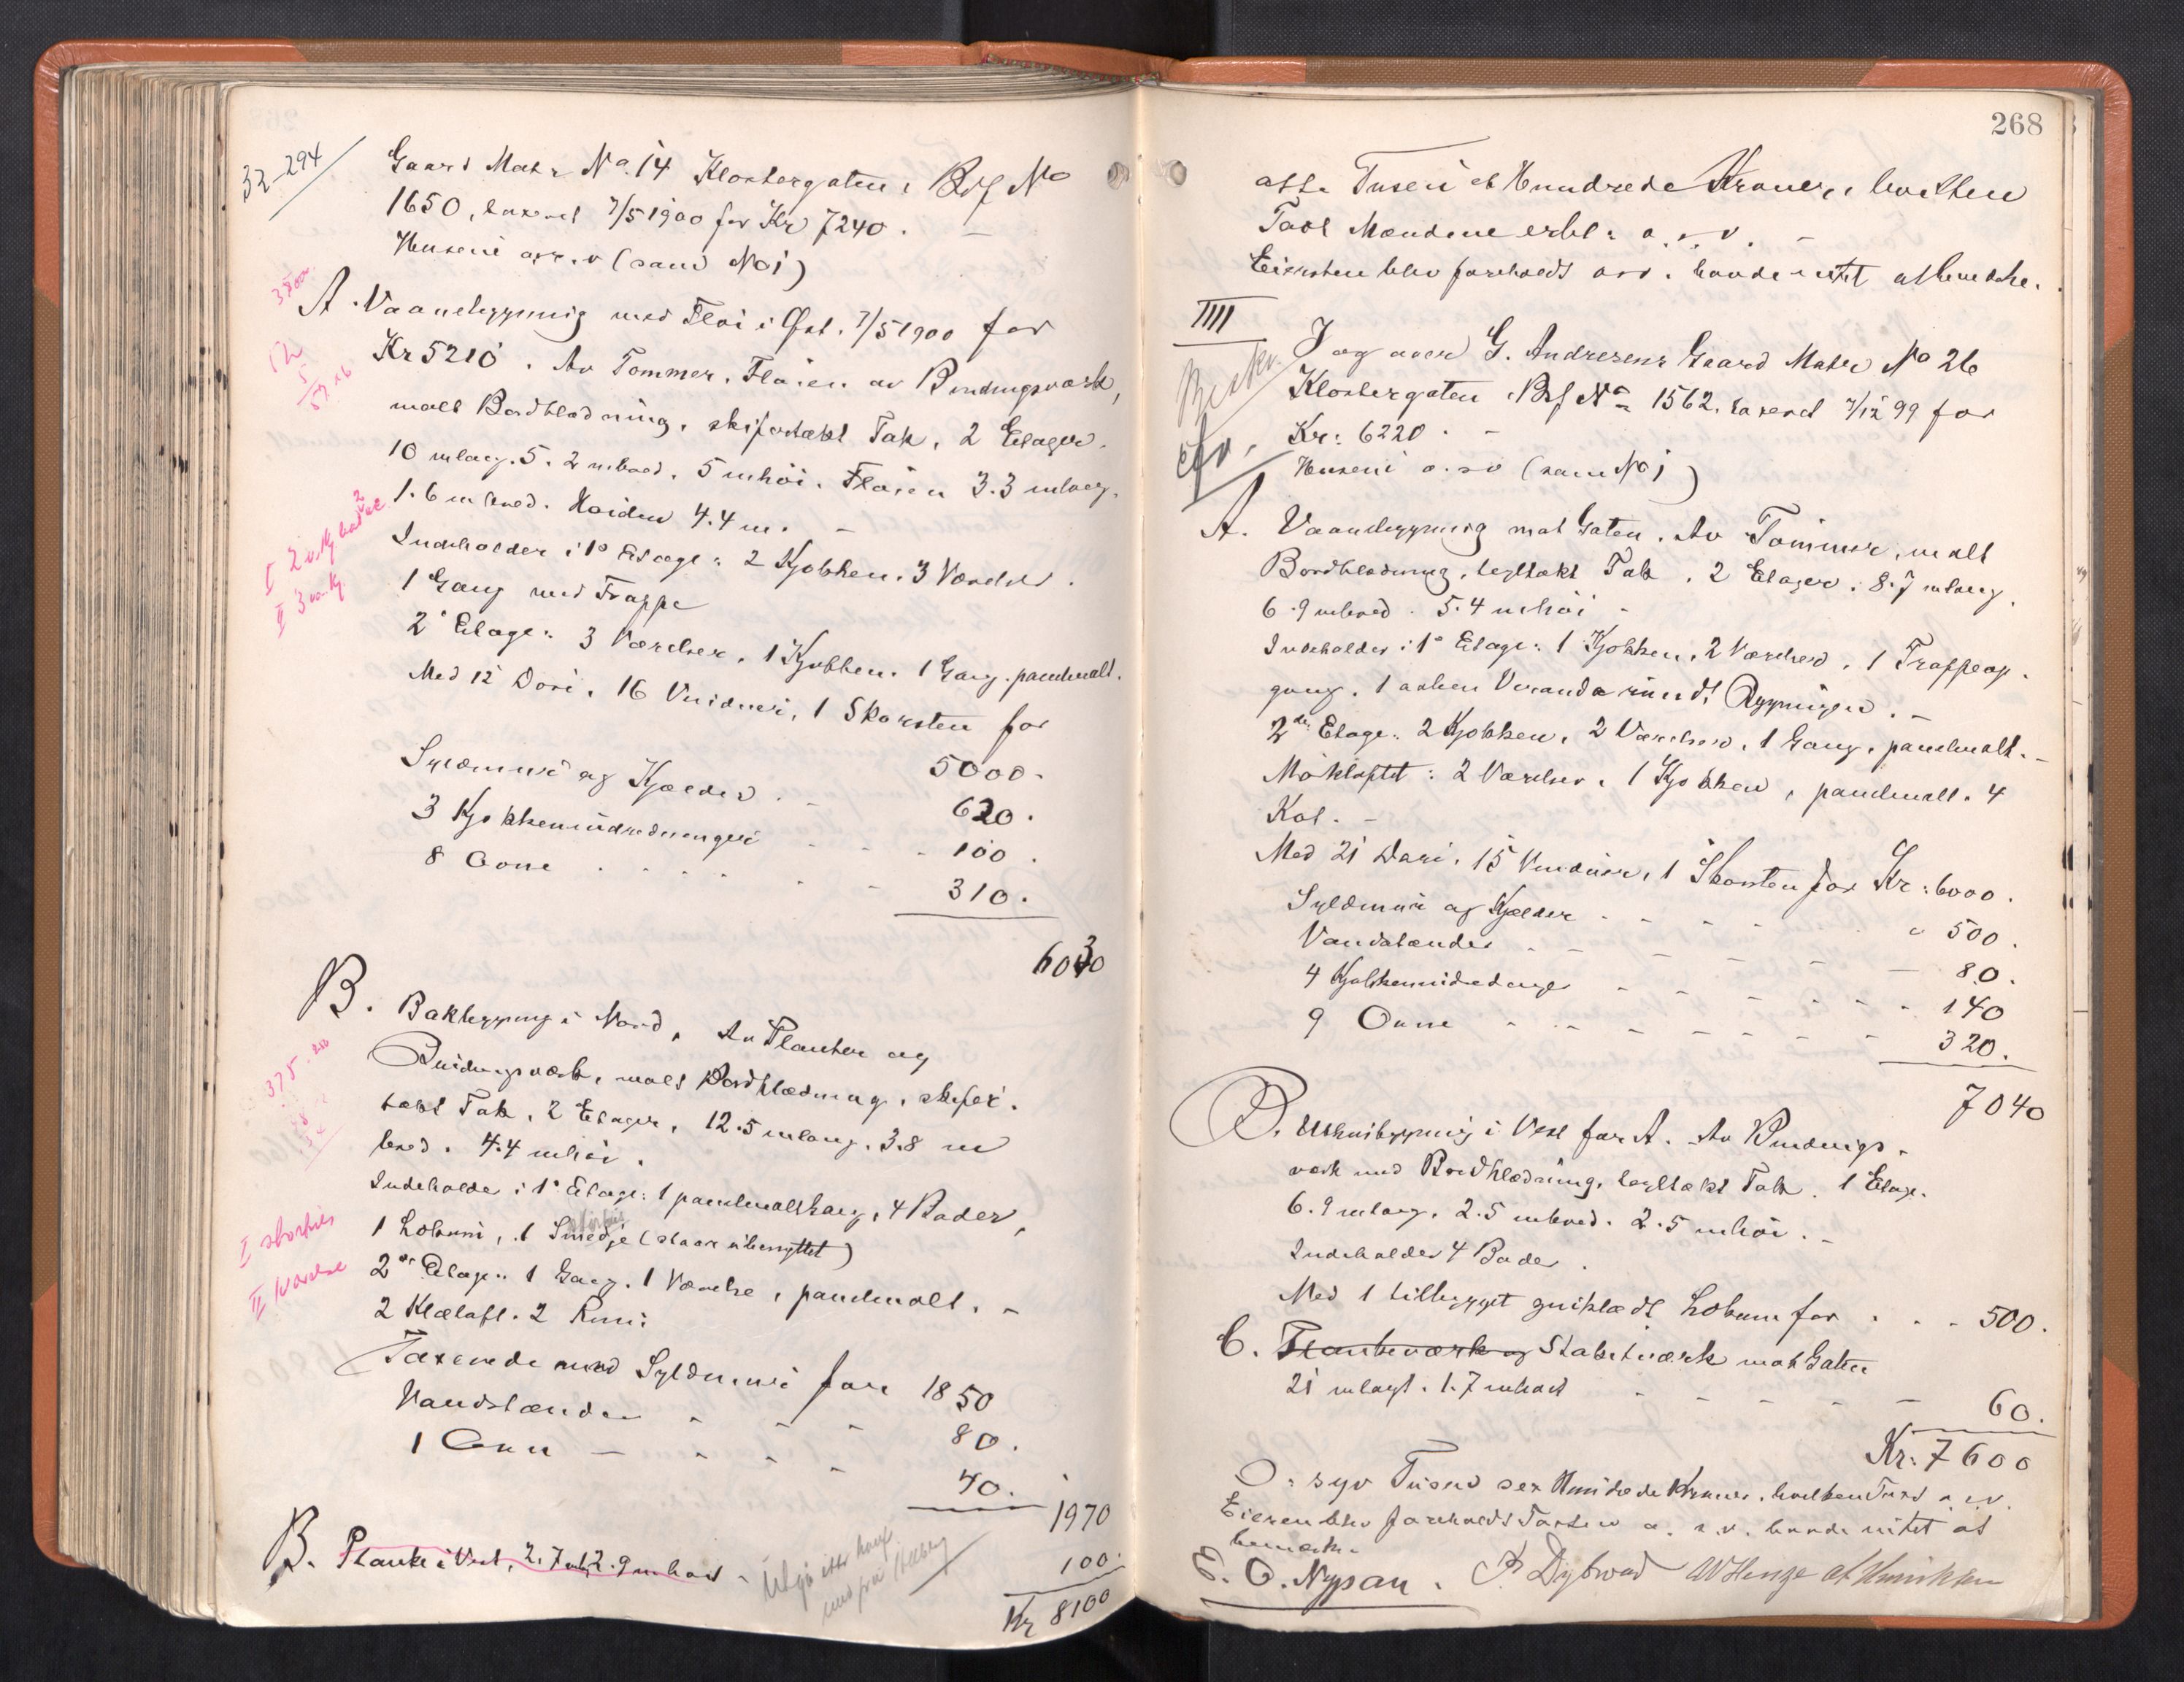 32-294
Gaard Matr No. 14 Klostergaten, Brf No
1650, taxeret 7/5 1900 for Kr 7240. -
Husene o.s.v (som No 1)
3800
A. Vaanebygning med Fløi i Øst. 7/5 1900 for
Kr 5210. Av Tømmer. Fløien av Bindingsværk,
malt Bordklædning, skifertækt Tak, 2 Etager.
10 m lang. 5.2 m bred. 5 m høi. Fløien 3.3 m lang.
1.6 m bred. Høiden 4.4 m. -
Indeholder i 1ste Etage: 2 Kjøkken. 3 Værelser.
1 Gang med Trappe
2den Etage: 3 Værelser. 1 Kjøkken. 1 Gang. panelmalt.
Med 12 Døre, 16 Vinduer, 1 Skorsten for
5000.
Syldmure og Kjælder . - 620.
3 Kjøkkenindredninger - - - 100.
8 Ovne . . . . - - 310.
6030
B. Bakbygning i Nord, Av Planker og
Bindingsværk, malt Bordklædning, skifer-
tækt Tak, 2 Etager, 12.5 m lang. 3.8 m
bred. 4.4 m høi.
375
Indeholder i 1ste Etage: 1 panelmalt Gang, 4 Boder,
1 Lokum, 1 Smedje (staar ubenyttet)
I
2den Etage: 1 Gang. 1 Værelse, panelmalt. -
II Værelse
2 Klæloft. 2 Rum:
Taxerede med Syldmure for 1850
Vandstænder - - - 80.
1 Ovn - - - - 40.
1970
B. Planke i Vest, 2.7 m lg 2.9 m høit - 100.
Utgår
Kr 8100
268
otte Tusen et Hundrede Kroner, hvilken
Taxt Mændene erkl: o.s.v. -
Eiersken blev foreholdt o.s.v. havde intet at bemerke.
IIII
Beskr.
I og over G. Andresens Gaard Matr No 26
Klostergaten Brf No 1562, taxeret 7/12 99 for
Kr: 6220. -
Husene o.s.v (som No 1)
A. Vaanebygning mot Gaten. Av Tømmer, malt
Bordklædning, tegltækt Tak, 2 Etager. 8.7 m lang.
6.9 m bred. 5.4 m høi -
Indeholder i 1ste Etage: 1 Kjøkken, 2 Værelser, 1 Trappeop-
gang. 1 aaben Veranda rundt Bygningen. -
2den Etage: 2 Kjøkken, 2 Værelser, 1 Gang, panelmalt. -
Mørkloftet: 2 Værelser, 1 Kjøkken, panelmalt. 4
Kot. -
Med 21 Døre, 15 Vinduer, 1 Skorsten for Kr: 6000.
Syldmure og Kjælder - - - - " 500.
Vandstænder - - - - - - 80.
4 Kjøkkenindredninger - - - - - 140
9 Ovne - - - - - - - 320.
7040
B. Uthusbygning i Vest for A. Av Bindings-
værk med Bordklædning, tegltækt Tak. 1 Etage.
6.9 m lang, 2.5 m bred. 2.5 m høi. -
Indeholder 4 Boder.
Med 1 tilbygget Lokum for . . - 500.
C. Plankeværk og Stakitværk mot Gaten
21 m langt. 1.7 m høit - - - - - 60.
Kr: 7600
O: syv Tusen sex Hundrede Kroner, hvilken Taxt o.s.v.
Eieren blev foreholdt Taxten o.s.v. havde intet at
bemerke
E. O. Nypan. P. Dybwad